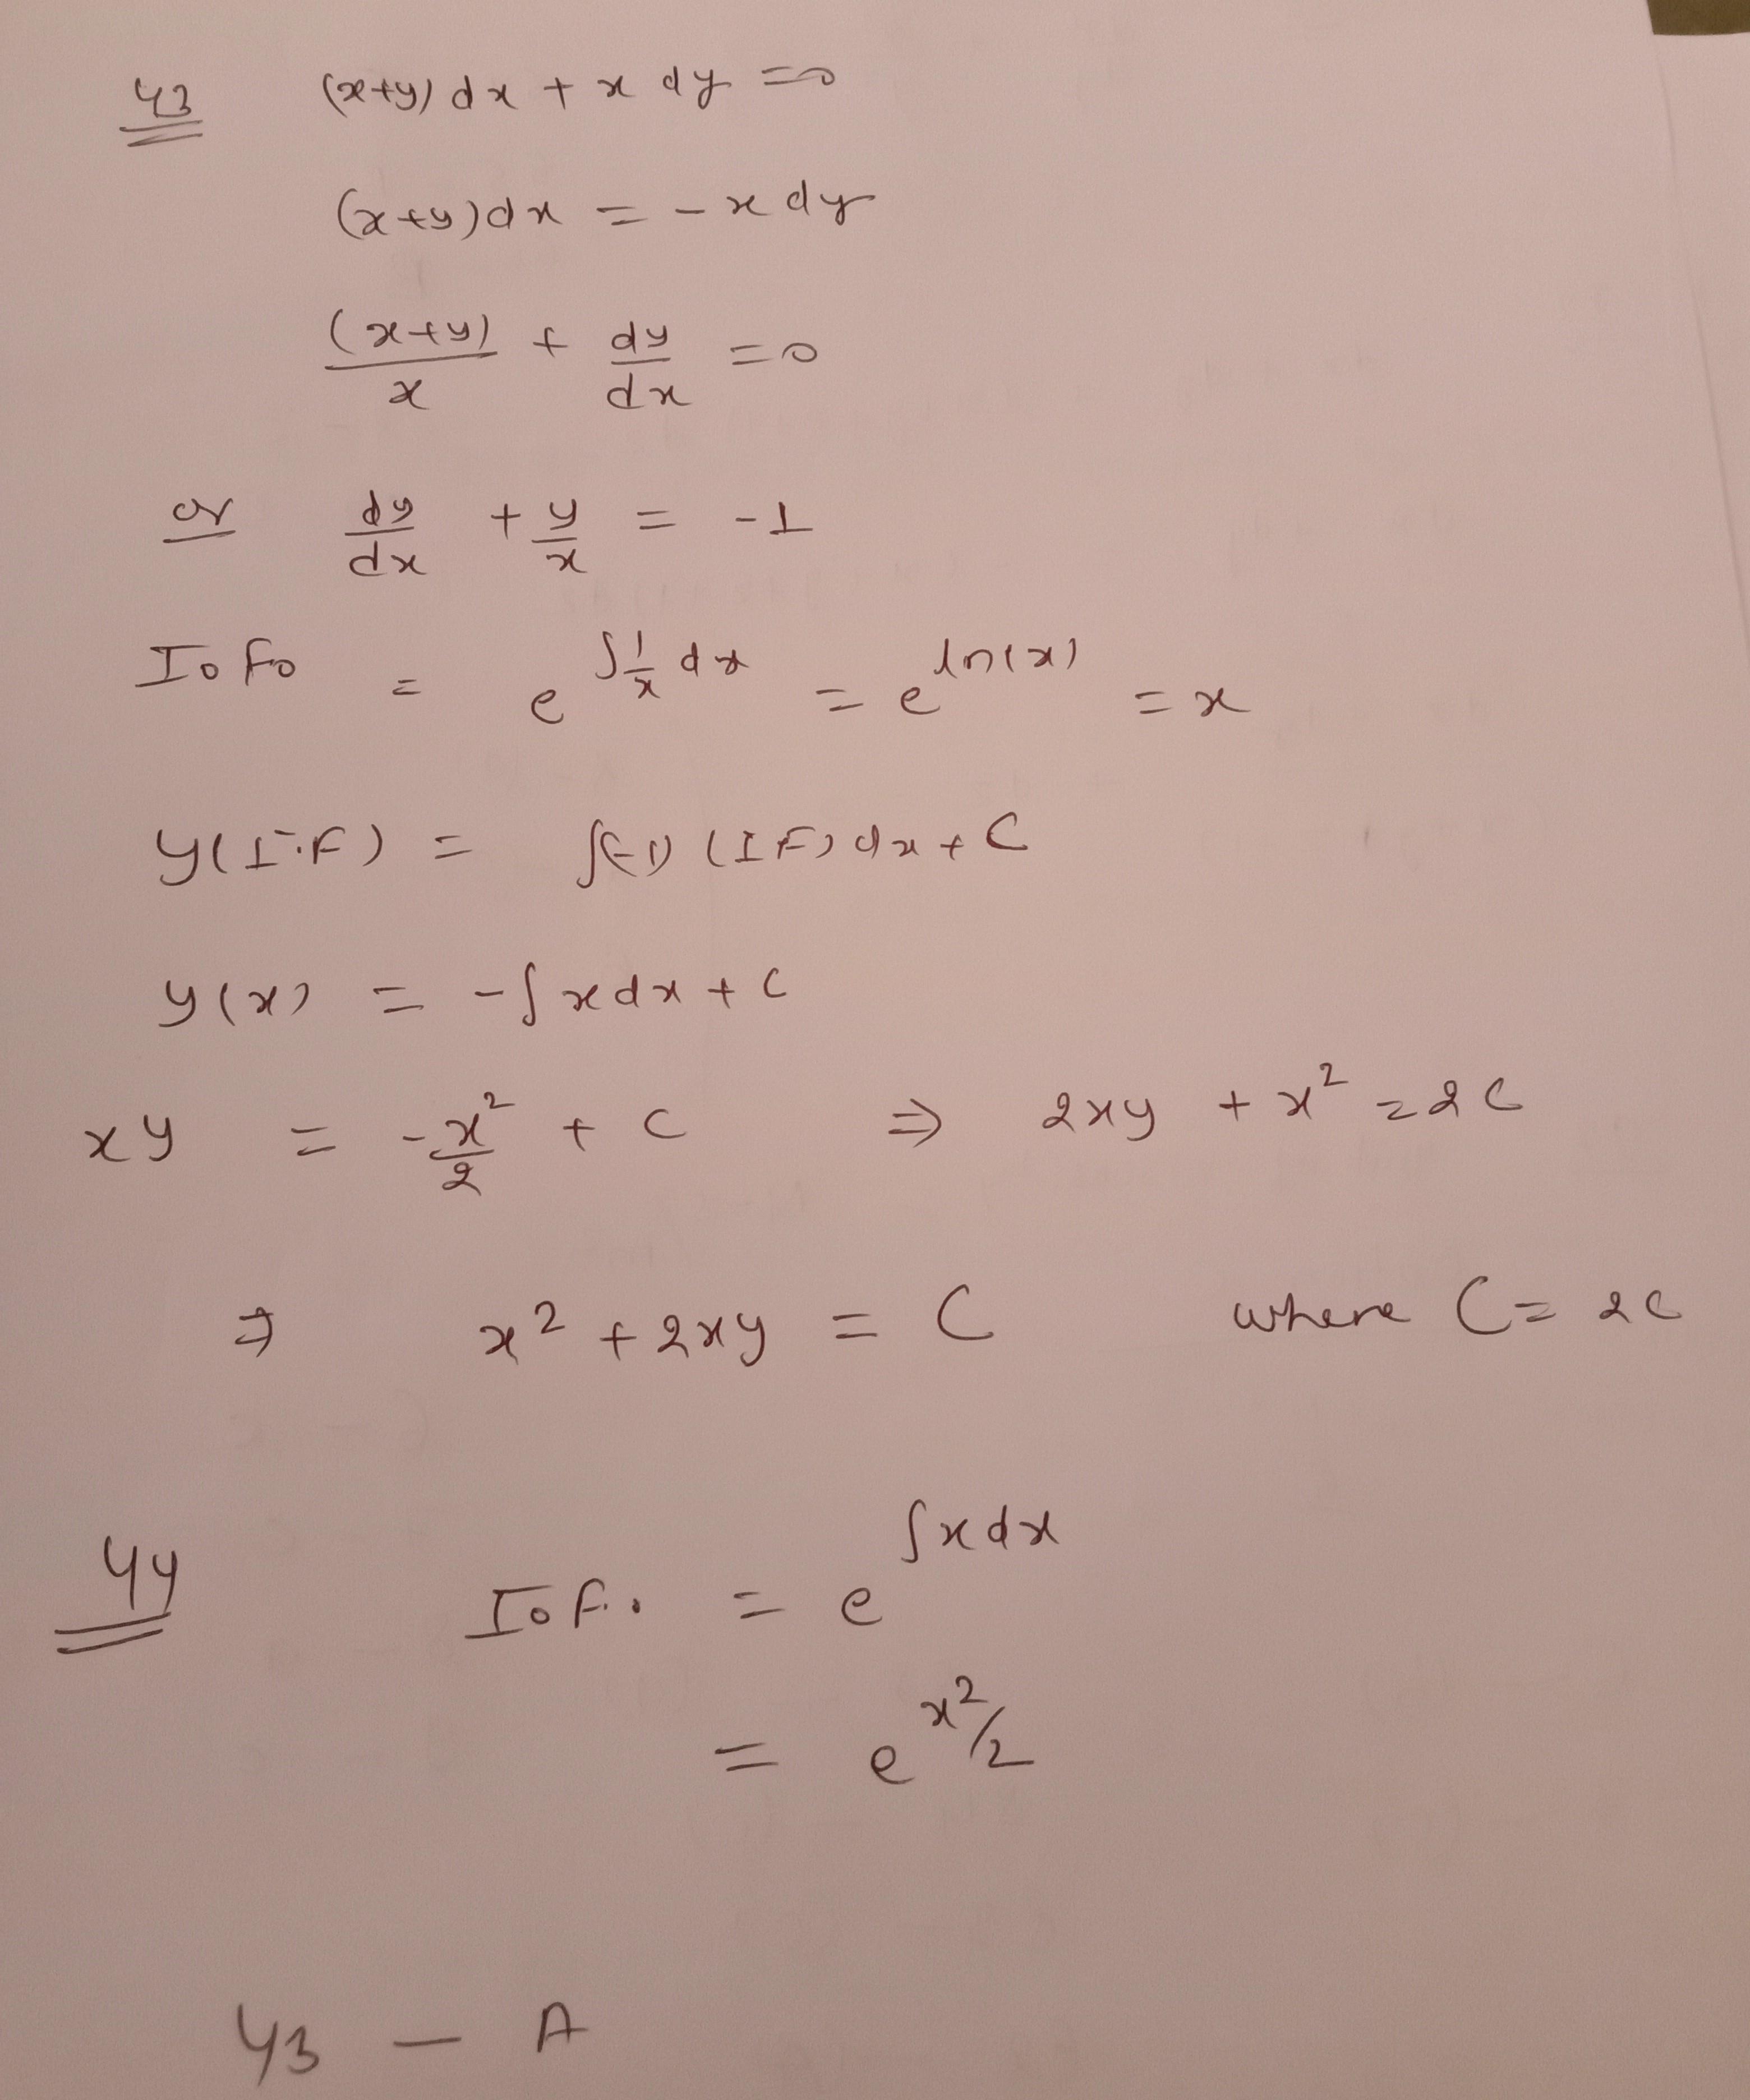 43 (x+y) dx + x dy = 0
(x+y) dx = - x dy
(x+y)/x + dy/dx = 0
or dy/dx + y/x = -1
I.F. = e^∫1/x dx = e^ln(x) = x
y(I.F) = ∫(-1) (IF) dx + C
y(x) = -∫x dx + C
xy = -x²/2 + C ⇒ 2xy + x² = 2C
⇒ x² + 2xy = C where C = 2C
44 I.F. = e^∫x dx
= e^x²/2
43 - A